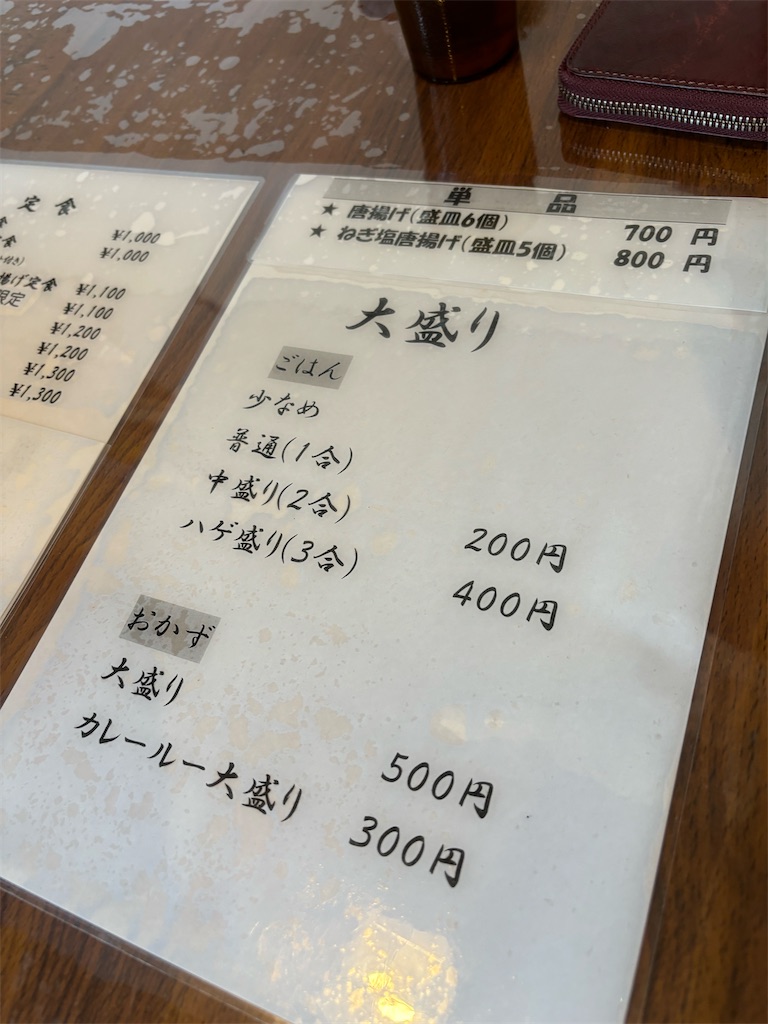 定食
食
¥1,000
食
¥1,000
付き)
揚げ定食 ¥1,100
限定 ¥1,100
¥1,200
¥1,200
¥1,300
¥1,300
単品
★ 唐揚げ(盛皿6個) 700 円
★ ねぎ塩唐揚げ(盛皿5個) 800 円
大盛り
ごはん
少なめ
普通(1合)
中盛り(2合) 200円
ハゲ盛り(3合) 400円
おかず
大盛り 500円
カレールー大盛り 300円